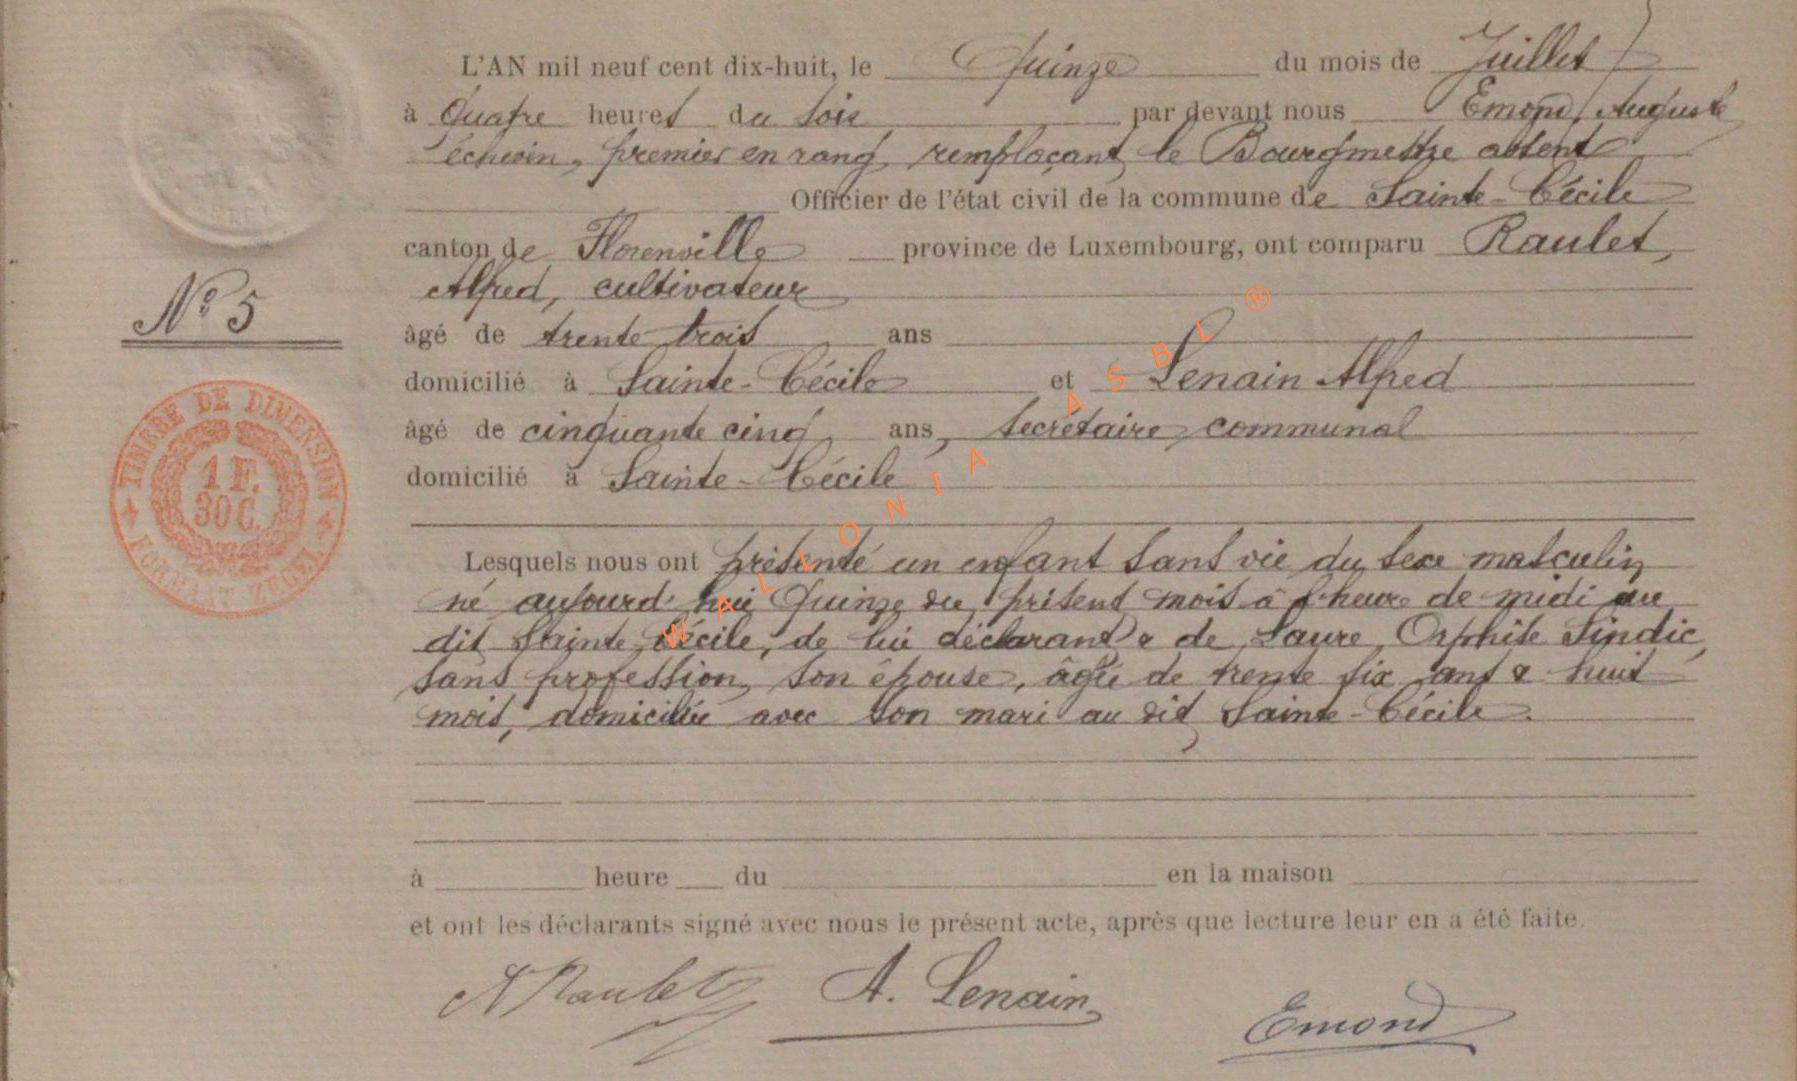 L'AN mil neuf cent dix-huit, le Quinze du mois de Juillet
à Quatre heures du soir par devant nous Emond, Auguste
échevin, premier en rang, remplaçant le Bourgmestre absent
Officier de l'état civil de la commune de Sainte-Cécile
canton de Florenville province de Luxembourg, ont comparu Raulet,
Alfred, cultivateur
N° 5
âgé de trente trois ans
domicilié à Sainte-Cécile et Lenain Alfred
âgé de cinquante cinq ans, secrétaire communal
domicilié à Sainte-Cécile
TIMBRE DE DIMENSION
1 F.
30 C.
FORMAAT ZEGEL
Lesquels nous ont présenté un enfant sans vie du sexe masculin
né aujourd'hui Quinze du présent mois à l'heure de midi au
dit Sainte Cécile, de lui déclarant & de Laure Orphise Sindic,
sans profession, son épouse, âgée de trente six ans & huit
mois, domiciliée avec son mari au dit Sainte-Cécile.
à heure du en la maison
et ont les déclarants signé avec nous le présent acte, après que lecture leur en a été faite.
A Raulet A. Lenain
Emond
WALLONIA ASBL ®